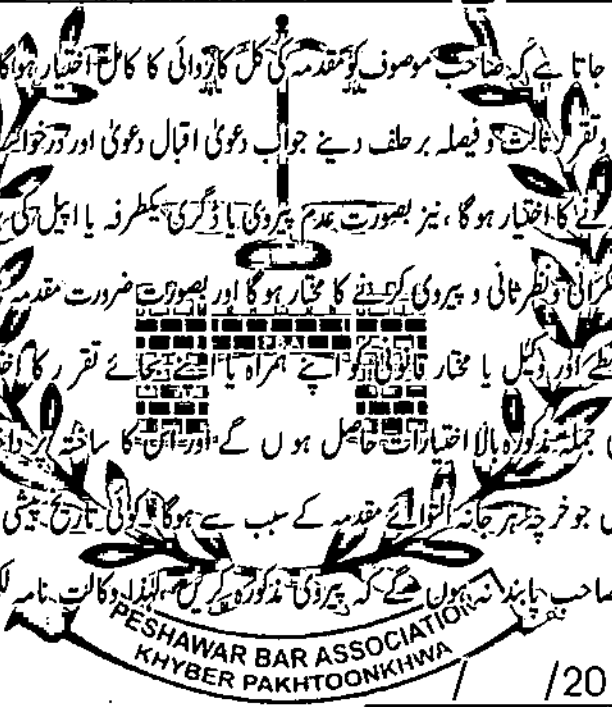 جاتا ہے کہ صاحب موصوف کو مقدمہ کی کل کاروائی کا کامل اختیار ہوگا
وتقرر ثالث و فیصلہ بر حلف دینے جواب دعویٰ اقبال دعویٰ اور
نے کا اختیار ہو گا ، نیز بصورت عدم پیروی یا ڈگری یکطرفہ یا اپیل کی
نگرانی و نظر ثانی و پیروی کرنے کا مختار ہو گا اور بصورت ضرورت مقدمہ
اور وکیل یا مختار قانونی کو اپنے ہمراہ یا اپنے بجائے تقرر کا
جملہ مذکورہ بالا اختیارات حاصل ہوں گے اور اس کا ساختہ
جو خرچہ ہرجانہ التوائے مقدمہ کے سبب سے ہوگا کوئی تاریخ پیشی
صاحب پابند نہ ہوں گے کہ پیروی مذکورہ کریں لہٰذا وکالت نامہ
P.B.A
PESHAWAR BAR ASSOCIATION
KHYBER PAKHTOONKHWA
/ /20